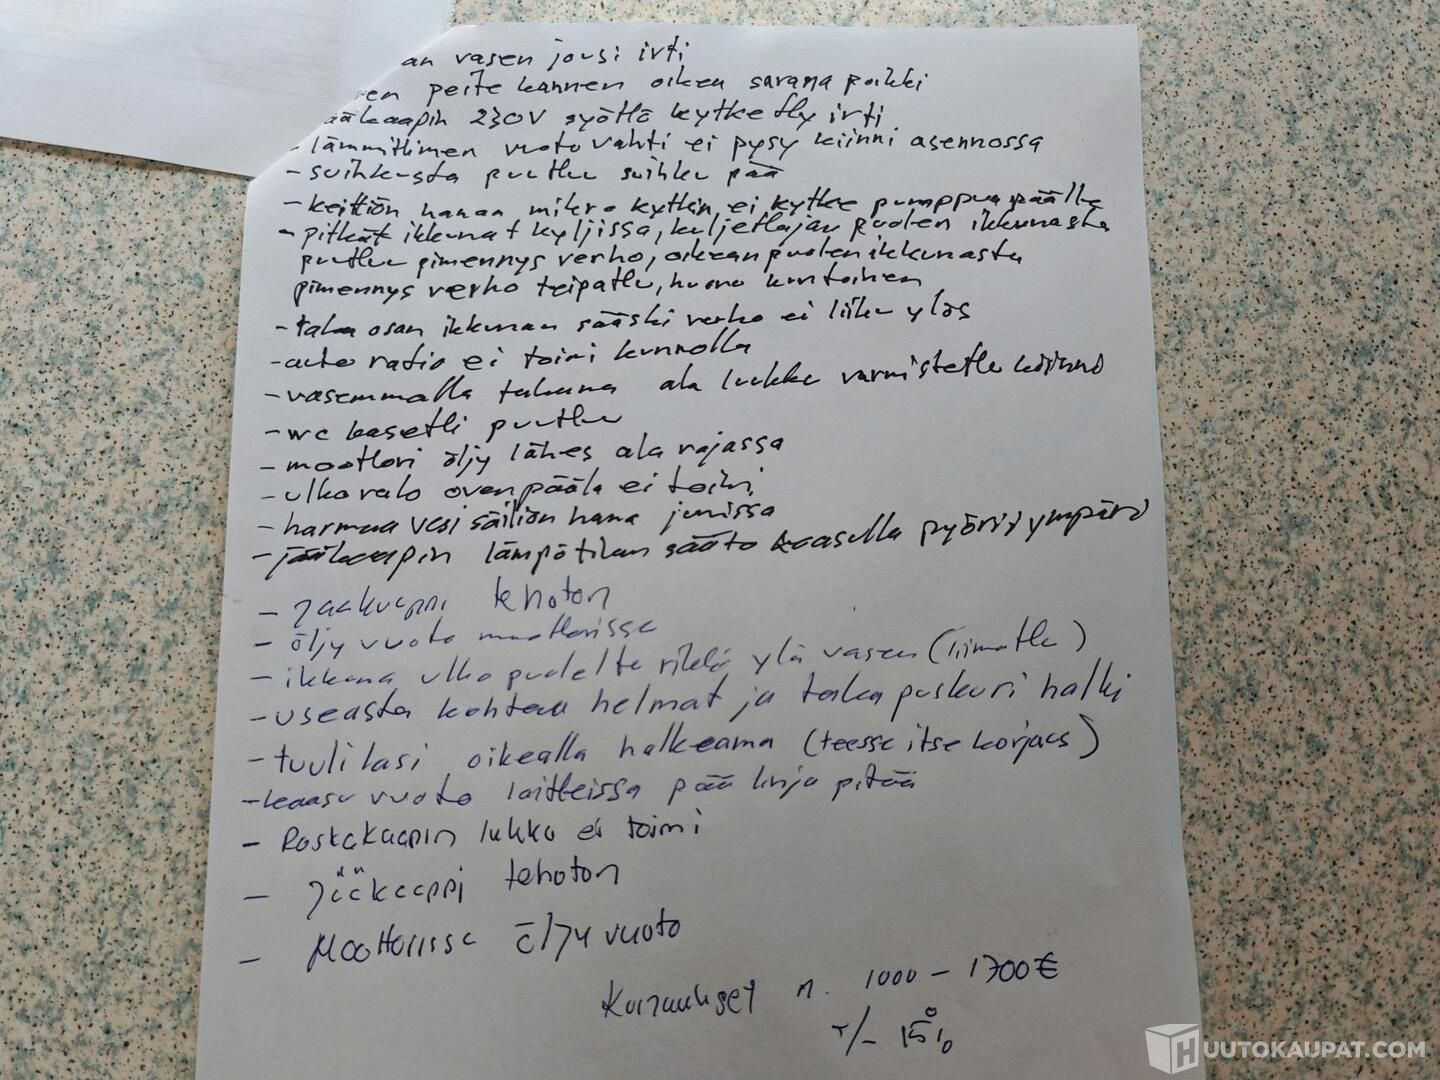 an vasen jousi irti
en peite kannen oikea sarana poikki
ääkaapin 230V syöttö kytketty irti
- lämmittimen vuoto vahti ei pysy kiinni asennossa
- suihkusta puuttuu suihku pää
- keittiön hanan mikro kytkin ei kytke pumppua päälle
- pitkät ikkunat kyljissä, kuljettajan puolen ikkunasta
puuttuu pimennys verho, oikean puolen ikkunasta
pimennys verho teipattu, huono kuntoinen
- taka osan ikkunan sääski verho ei liiku ylös
- auto ratio ei toimi kunnolla
- vasemmalla takana ala luukku varmistettu kiinni
- wc kasetti puuttuu
- moottori öljy lähes ala rajassa
- ulko valo oven päälä ei toimi
- harmaa vesi säiliön hana jumissa
- jääkaapin lämpötilan säätö kaasulla pyörii ympäri
- Jaakaappi tehoton
- öljy vuoto moottorissa
- ikkuna ulko puolelta rikki ylä vasen (liimattu)
- useasta kohtaa helmat ja taka puskuri halki
- tuuli lasi oikealla halkeama (teessä itse korjaus)
- kaasu vuoto laitteissa pää linja pitää
- Roskakaapin lukko ei toimi
- Jääkaappi tehoton
- Moottorissa öljy vuoto
Korjaukset n. 1000 - 1700€
+/- 15%
HUUTOKAUPAT.COM